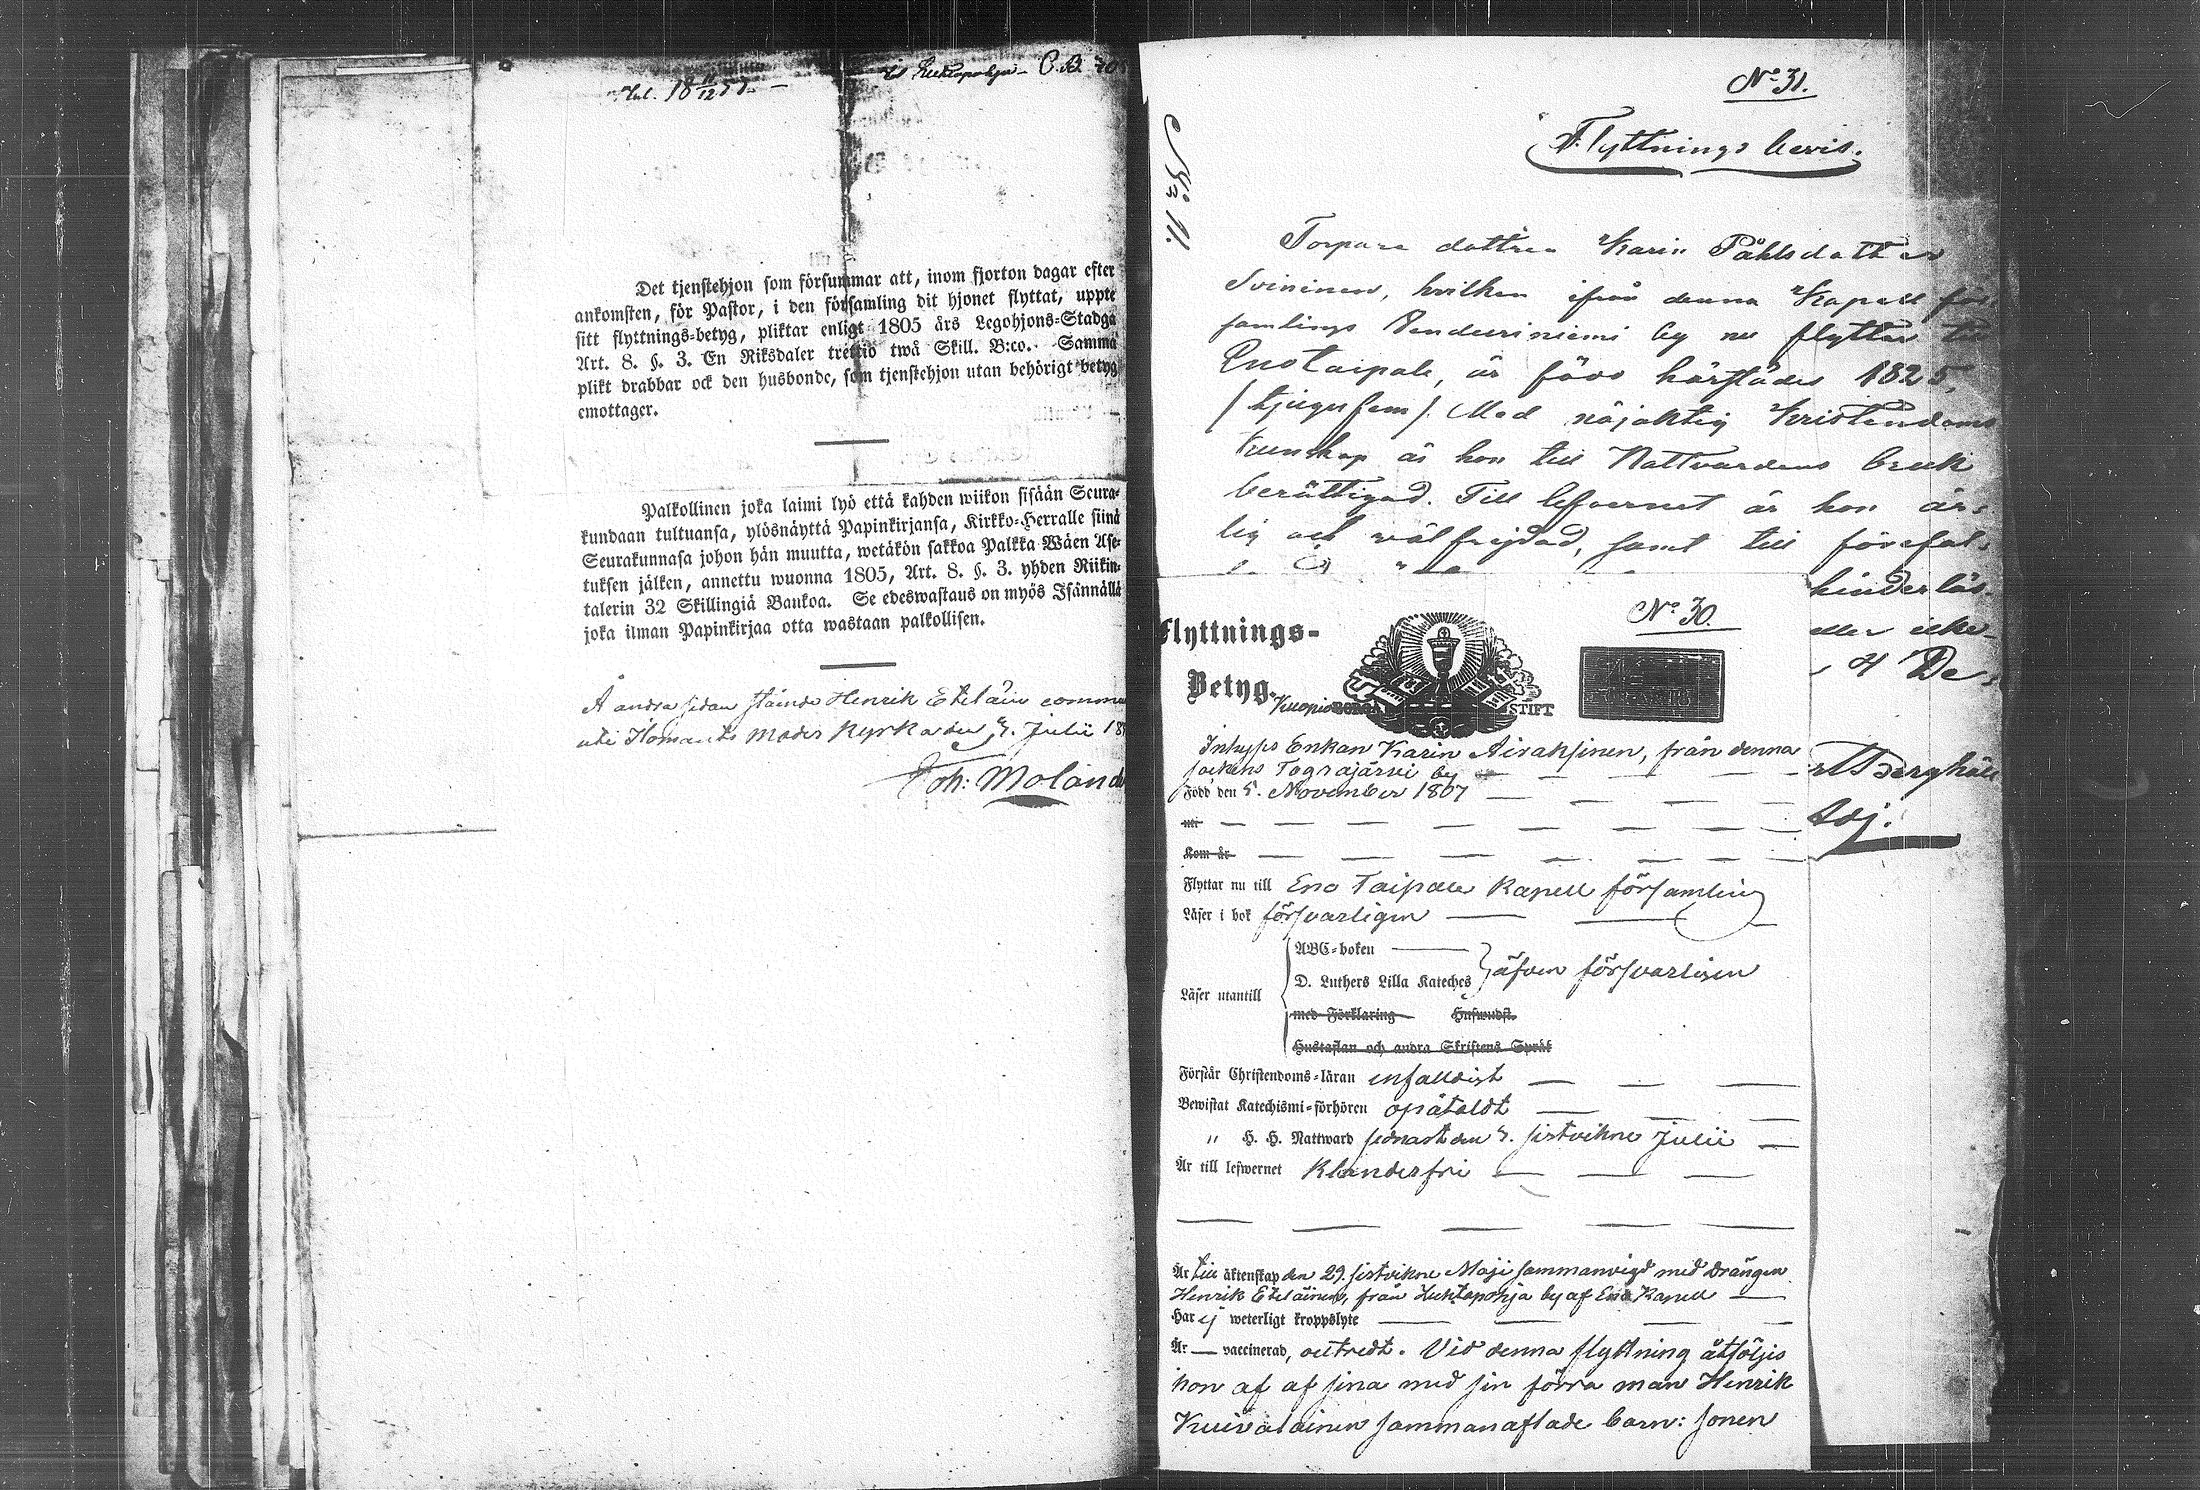 Inl. 18 11/12 57.
till Huhtapohja C.B. 70
Det tjenstehjon som försummar att, inom fjorton dagar efter
ankomsten, för Pastor, i den församling dit hjonet flyttat, uppte
sitt flyttnings-betyg, pliktar enligt 1805 års Legohjons-Stadga
Art. 8. §. 3. En Riksdaler trettio twå Skill. B:co. Samma
plikt drabbar ock den husbonde, som tjenstehjon utan behörigt betyg
emottager.
Palkollinen joka laimi lyö että kahden wiikon sisään Seura-
kundaan tultuansa, ylösnäyttä Papinkirjansa, Kirkko-Herralle siinä
Seurakunnasa johon hän muutta, wetäkön sakkoa Palkka Wäen Ase-
tuksen jälken, annettu wuonna 1805, Art. 8. §. 3. yhden Riikin-
talerin 32 Skillingiä Bankoa. Se edeswastaus on myös Isännällä
joka ilman Papinkirjaa otta wastaan palkollisen.
Å andra sidan stående Henrik Eteläin commu
uti Ilomants Moder Kyrka den 5. Julii 18
Joh: Moland
No 31.
Flyttnings bevis.
No 11.
Torpare dottren Karin Påhlsdotter
Svininen, hvilken ifrån denna Kapell för
samlings by nu flyttar till
Eno Taipale, är född härstädes 1825,
/tjugufem/. Med nöjaktig Kristendoms
kunskap är hon till Nattvardens bruk
berättigad. Till lefvernet är hon är-
lig och välfrejdad, samt till förefal-
hinderlös.
eller icke
4 De-
Berghäll
Adj.
No 30.
Flyttnings-
Betyg.
Kuopio STIFT
Inhyses Enkan Karin Airaksinen, från denna
sockens Tograjärvi by
Född den 5. November 1807
uti
Kom år
Flyttar nu till Eno Taipale Kapell församling
Läser i bok försvarligen
ABC-boken
D. Luthers Lilla Kateches } äfven försvarligen
Läser utantill
med Förklaring Hufwudst.
Hustaflan och andra Skriftens Språk
Förstår Christendoms-läran enfaldigt
Bewistat Katechismi-förhören opåtaldt
" H. H. Nattward sednast den 5. sistvikne Julii
Är till lefwernet Klanderfri
Är till äktenskap den 29. sistvikne Maji sammanvigd med drängen
Henrik Eteläinen, från Huhtapohja by af Eno Kapell
Har ej weterligt kroppslyte
Är — vaccinerad, utredt. Vid denna flyttning åtföljes
hon af af sina med sin förra man Henrik
Kuivalainen sammanaflade barn: sonen